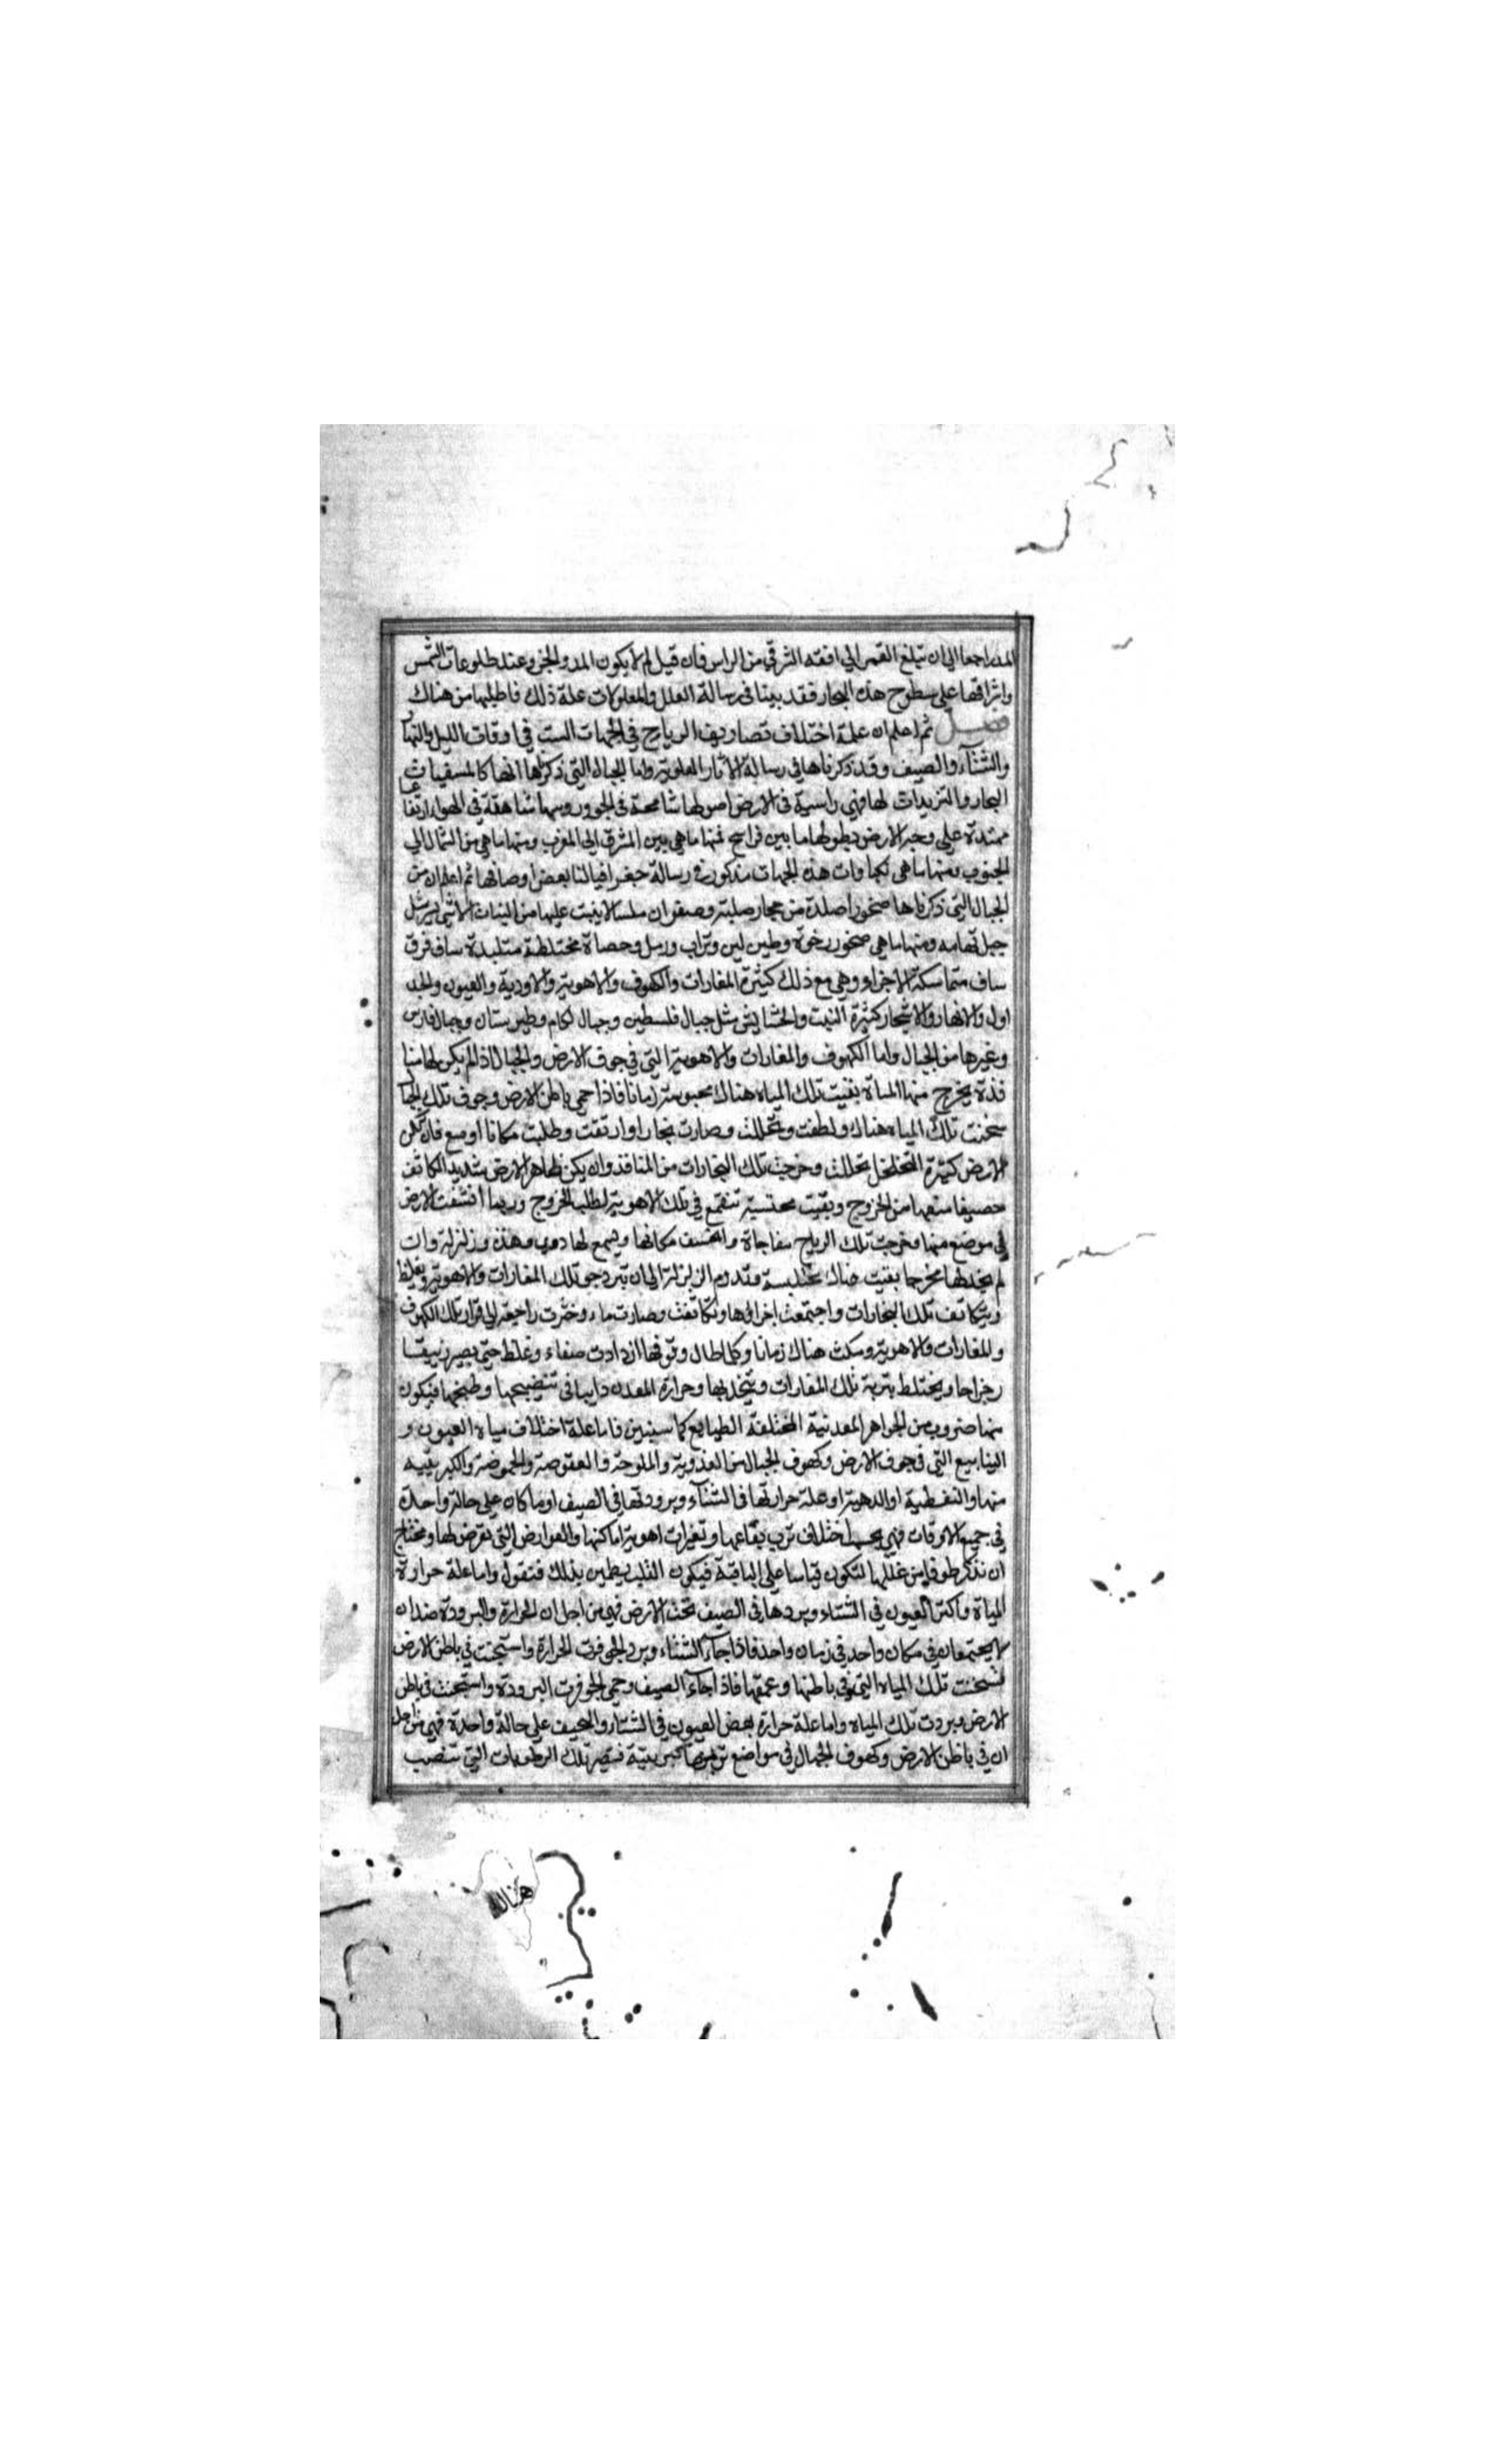 المد راجعا الى ان تبلغ القمر الى افقه الشرقي من الراس فان قيل لم لا يكون المد والجزر عند طلوعات الشمس
واشراقها على سطوح هذه البحار فقد بينا في رسالة العلل والمعلولات علة ذلك فاطلبها من هناك
فصل ثم اعلم ان علة اختلاف تصاريف الرياح في الجهات الست في اوقات الليل والنهار
والشتآء والصيف وقد ذكرناها في رسالة الاثار العلوية واما الجبال التي ذكرنا انها كالمسقيات
البحار والتزيدات لها فهي راسية في الارض اصولها شامخة في الجو رؤسها شاهقة في الهوا ارتفاعا
ممتدة على وجه الارض بطولها ما بين فراسخ فمنها ما هي بين المشرق الى المغرب ومنها ما هي من الشمال الى
الجنوب ومنها ما هي نكباوات هذه الجهات مذكور في رسالة جغرافيا لنا بعض اوصافها ثم اعلم ان من
الجبال التي ذكرناها صخورا صلدة من حجار صلبة وصفوان ملسا لا ينبت عليها من النبات الا شي يسير مثل
جبل تهامه ومنها ما هي صخور رخوة وطين لين وتراب ورمل وحصاة مختلطة متلبدة ساف فوق
ساف متماسكة الاجزاء وهي مع ذلك كثيرة المغارات والكهوف والاهوية والاودية والعيون والجد
اول والانهار والاشجار كثيرة النبت والحشايش مثل جبال فلسطين وجبال لكام وطبرستان وجبال فارس
وغيرها من الجبال واما الكهوف والمغارات والاهوية التي في جوف الارض والجبال اذ لم يكن لها منا
فذة يخرج منها المياة بقيت تلك المياه هناك محبوسة زمانا فاذا حمى باطن الارض وجوف تلك الجبال
سخنت تلك المياه هناك ولطفت وتحللت وصارت بخارا وارتفت وطلبت مكانا اوسع فان تكن
الارض كثيرة التخلخل تحللت وخرجت تلك البخارات من المنافذ وان يكن ظاهر الارض شديد التكاثف
حصيفا منعها من الخروج وبقيت محتبسة تتقمع في تلك الاهوية لطلب الخروج وربما انشقت الارض
في موضع منها وخرجت تلك الرياح مفاجاة وانخسف مكانها ويسمع لها دوي وهدة وزلزلة وان
لم يجد لها مخرجا بقيت هناك محتبسة وتدوم الزلزلة الى ان تبرد جو تلك المغارات والاهوية ويغلظ
وتتكاثف تلك البخارات واجتمعت اجزاؤها وتكاثفت وصارت ماء وخرت راجعة الى قرار تلك الكهوف
والمغارات والاهوية ومكث هناك زمانا وكلما طال وقوفها ازدادت صفاء وغلظا حتى يصير زيبقا
رجراجا ويختلط بتربة تلك المغارات ويتحد بها وحرارة المعدن دايبا في تنضيجها وطبخها فيكون
منها ضروب من الجواهر المعدنية المختلفة الطبايع كما سنبين فاما علة اختلاف مياه العيون و
الينابيع التي في جوف الارض وكهوف الجبال من العذوبة والملوحة والعفوصة والحموضة والكبريتيه
منها والنفطية او الدهنية او علة حرارتها في الشتآء وبرودتها في الصيف او ما كان على حالة واحدة
في جميع الاوقات فهي بحسب اختلاف ترب بقاعها وتغيرات اهوية اماكنها والعوارض التي تعرض لها ونحتاج
ان نذكر طرفا من عللها لتكون قياسا على الباقية فيكون القلب يطمين بذلك فنقول واما علة حرارة
المياة واكثر العيون في الشتاء وبردها في الصيف تحت الارض فهي من اجل ان الحرارة والبرودة ضدان
لا يجتمعان في مكان واحد في زمان واحد فاذا جآء الشتاء وبرد الجو فرت الحرارة واستجنت في باطن الارض
فسخنت تلك المياه التي في باطنها وعمقها فاذا جآء الصيف وحمى الجو فرت البرودة واستجنت في باطن
الارض وبردت تلك المياه واما علة حرارة بعض العيون في الشتاء والصيف على حالة واحدة فهي من اجل
ان في باطن الارض وكهوف الجبال في مواضع تربتها كبريتية فتصير تلك الرطوبات التي تنصب
هناك